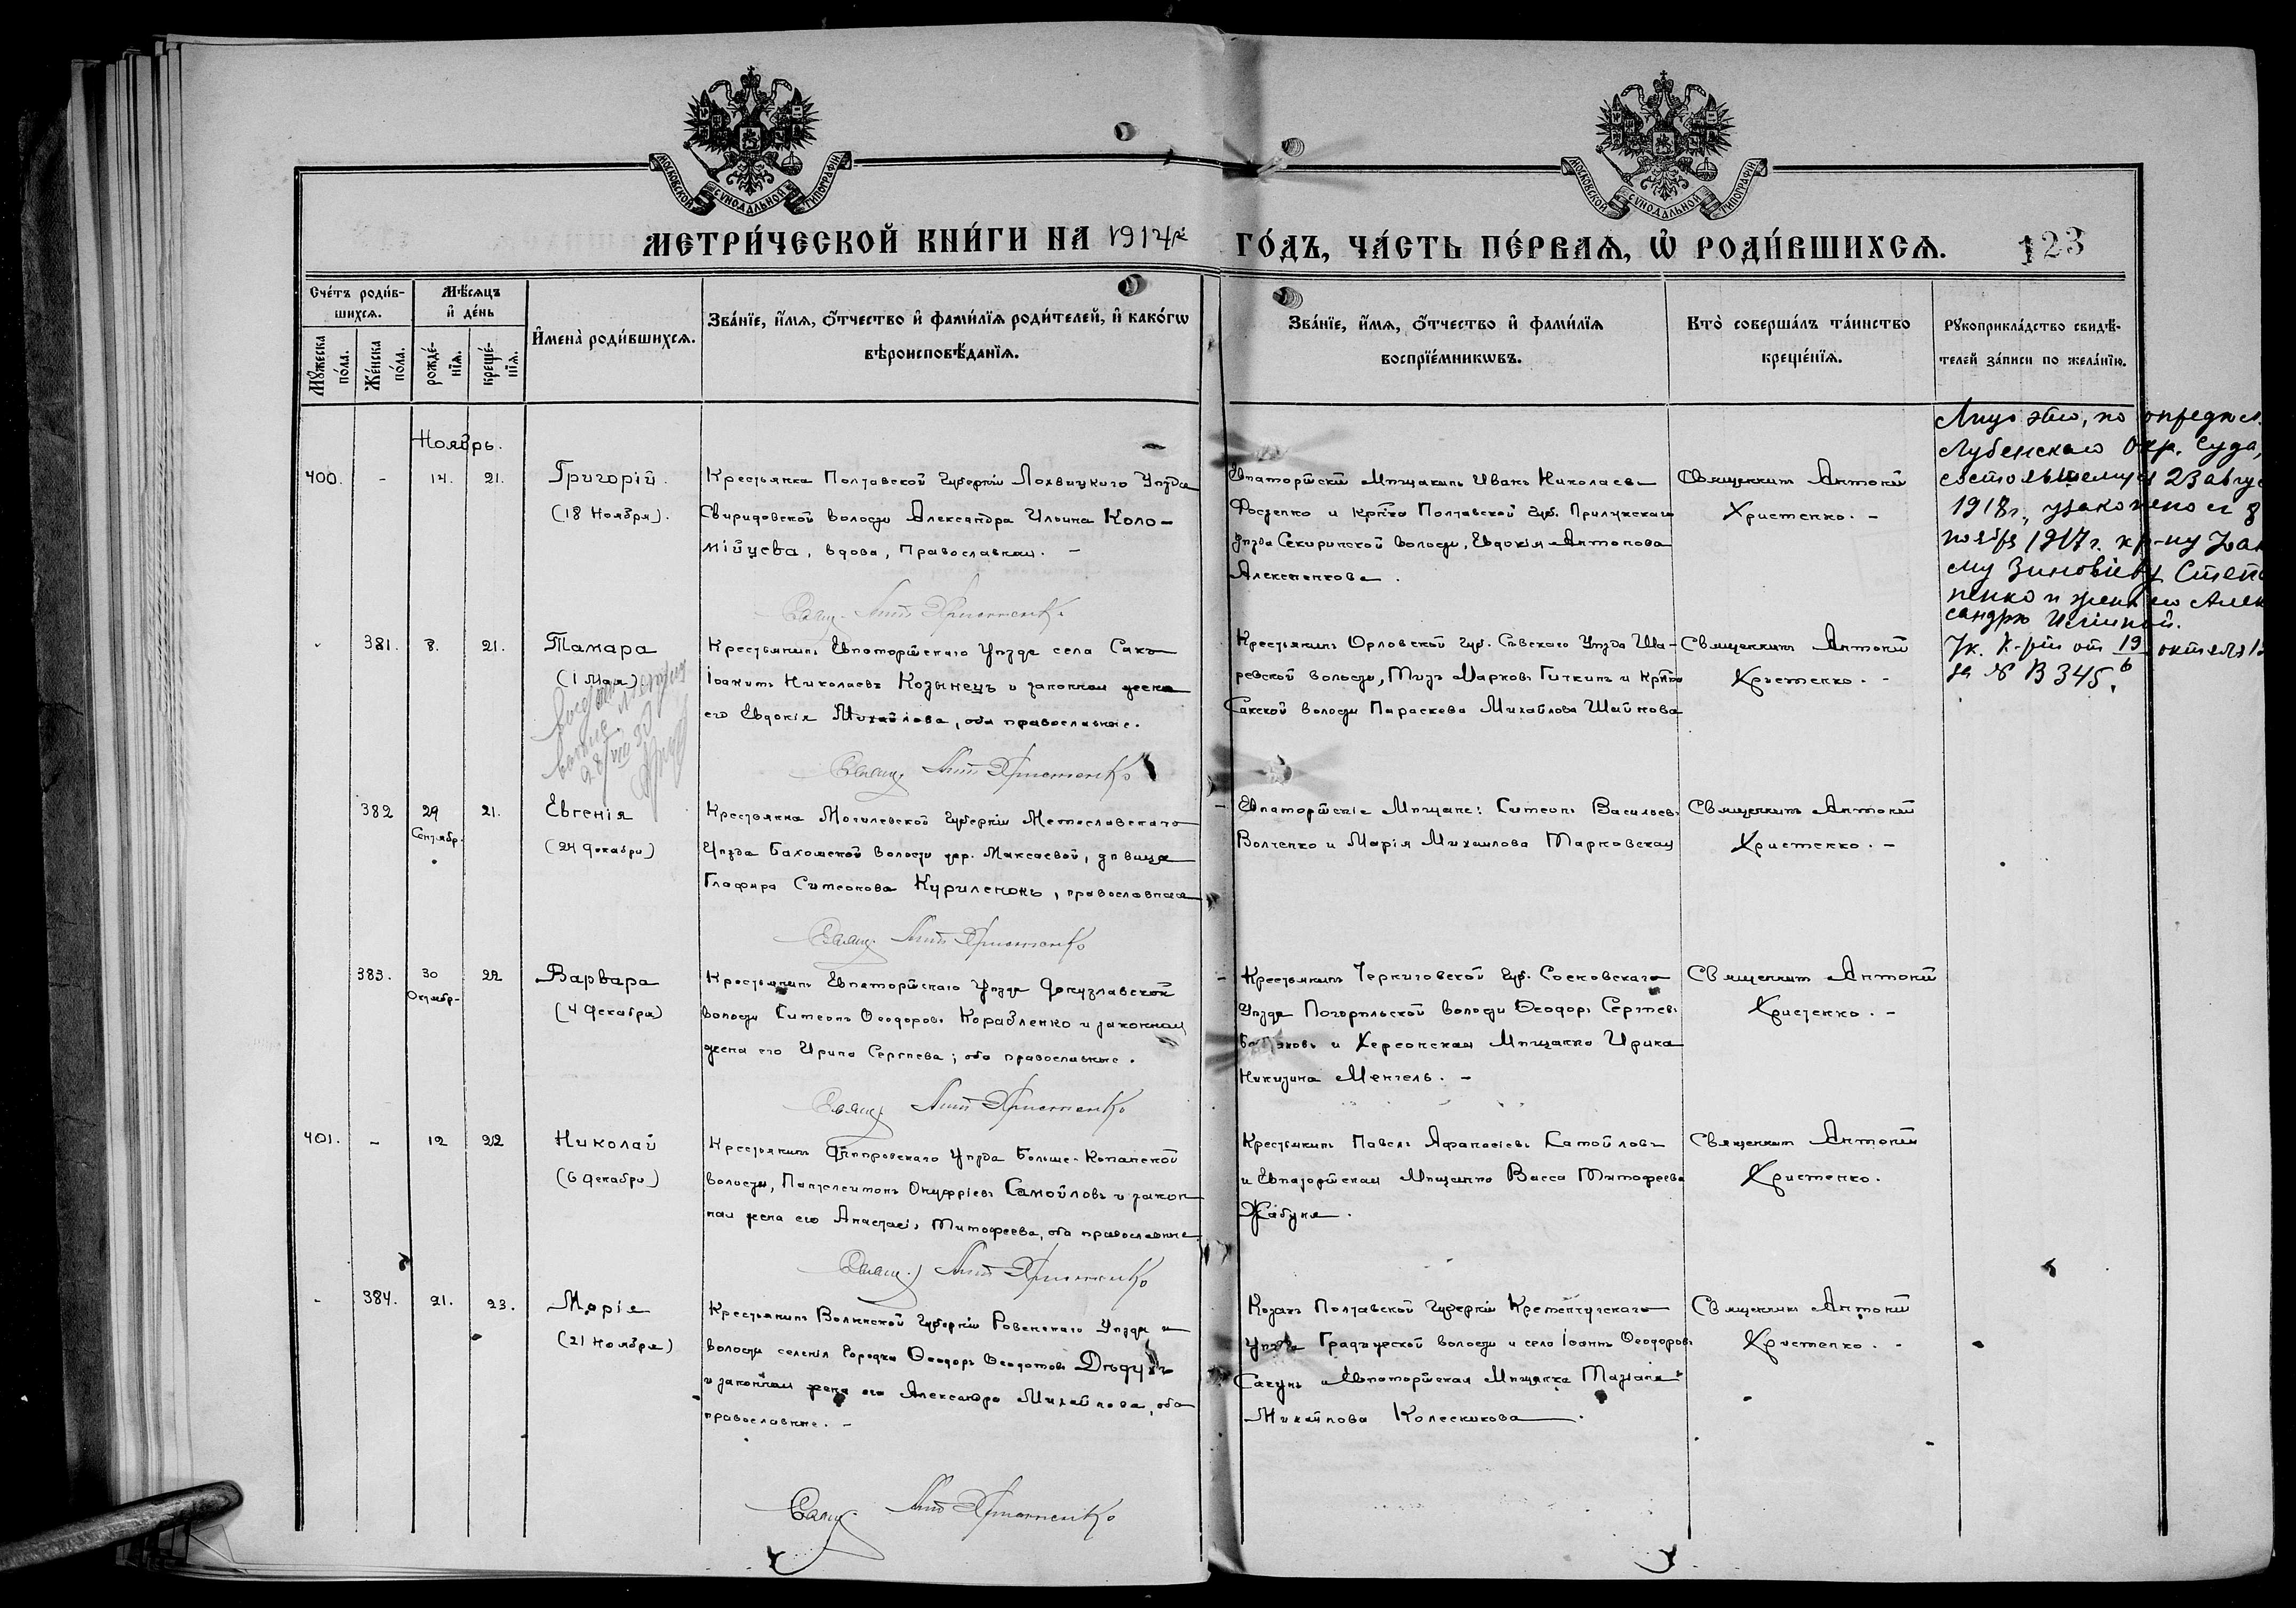 МОСКОВСКОЙ СУНОДАЛЬНОЙ ТИПОГРАФІИ
МОСКОВСКОЙ СУНОДАЛЬНОЙ ТИПОГРАФІИ
МЕТРИ́ЧЕСКОЙ КНИ́ГИ НА 1914й ГО́ДЪ, ЧА́СТЬ ПЕ́РВАѦ, Ѿ РОДИ́ВШИХСѦ. 123
Сче́тъ роди́в-
шихсѧ.
Мꙋ́жеска по́ла.
Же́нска по́ла.
Мѣ́сѧцъ
и҆ де́нь
рожде́-нїѧ.
креще́-нїѧ.
И҆мена̀ роди́вшихсѧ.
Зва́нїе, и҆́мѧ, ѻ҆́тчество и҆ фами́лїѧ роди́телей, и҆ како́гѡ
вѣроисповѣ́данїѧ.
Зва́нїе, и҆́мѧ, ѻ҆́тчество и҆ фами́лїѧ
воспрїе́мникѡвъ.
Кто̀ соверша́лъ та́инство
креще́нїѧ.
Рꙋкоприкла́дство свидѣ́-
телей за́писи по жела́нїю.
Ноябрь.
400. - 14. 21. Григорій.
(18 Ноября).
Крестьянка Полтавской Губерніи Лохвицкаго Уѣзда
Свиридовской волости Александра Ильина Коло-
мійцева, вдова, Православная. -
Свящ. Ант Христенко
Евпаторійскій Мѣщанинъ Иванъ Николаевъ
и Полтавской Губ. Прилукскаго
Уѣзда Секиринской волости, Евдокія Антонова
Алексеенкова.
Священникъ Антоній
Христенко. -
Лицо это, по опредѣл.
Лубенскаго Окр. Суда,
состоявшемуся 23 авгус
1918г., узаконено
ноября 1917г. кр-ну
Зиновіеву Степа
ненко и женѣ его Алек
сандрѣ Ильиной.
Ук. К-ріи от 19 октября
за № В 345.
- 381. 8. 21. Тамара
(1 Мая)
28/VII 30
Крестьянинъ Евпаторійскаго Уѣзда села Сакъ
Іоакимъ Николаевъ Козынецъ и законная жена
его Евдокія Михайлова, оба православные.
Свящ. Ант Христенко
Крестьянинъ Орловской Губ. Сѣвскаго Уѣзда Ша-
ревской волости, Титъ Марковъ Гичкинъ и
Сакской волости Параскева Михайлова Шайнова
Священникъ Антоній
Христенко. -
382 29 Сентябр. 21. Евгенія
(24 Декабря)
Крестьянка Могилевской Губерніи Мстиславскаго
Уѣзда волости дер. Максаевой, дѣвица
Глафира Симеонова Куриленокъ, православная
Свящ. Ант Христенко
- Евпаторійскіе Мѣщане: Симеонъ Васильевъ
Волченко и Марія Михаилова Марковская
Священникъ Антоній
Христенко. -
383. 30 Октябр- 22 Варвара
(4 Декабря)
Крестьянинъ Евпаторійскаго Уѣзда Донузлавской
волости Симеонъ Ѳеодоровъ Корабленко и законная
жена его Ирина Сергѣева; оба православные.
Свящ. Ант Христенко
- Крестьянинъ Черниговской Губ. Сосновскаго
Уѣзда Погорѣльской волости Ѳеодоръ Сергѣевъ
и Херсонская Мѣщанка Ирина
Никитина Менгель. -
Священникъ Антоній
Христенко. -
401. - 12 22 Николай
(6 Декабря)
Крестьянинъ Днѣпровскаго Уѣзда Больше-Копанской
волости, Пантелеимонъ Онуфріевъ Самойловъ и закон-
ная жена его Анастасія Тимофеева, оба православные
Свящ. Ант Христенко
Крестьянинъ Павелъ Афанасіевъ Самойловъ
и Евпаторійская Мѣщанка Васса Тимофеева
Жабуня.
Священникъ Антоній
Христенко.
- 384. 21. 23. Марія
(21 Ноября)
Крестьянинъ Волынской Губерніи Ровенскаго Уѣзда и
волости селенія Городка Ѳеодоръ Ѳеодотовъ Дѣдухъ
и законная жена его Александра Михайлова, оба
православные. -
Свящ. Ант Христенко
Козакъ Полтавской Губерніи Кременчугскаго
Уѣзда Градижской волости и села Іоаннъ Ѳеодоровъ
Сагунъ и Евпаторійская Мѣщанка Татіана
Михайлова Колесникова.
Священникъ Антоній
Христенко. -